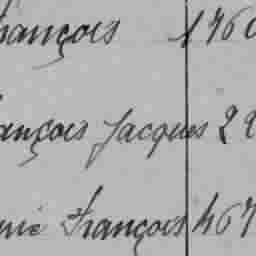 françois 1460
ançois Jacques 22
rie françois 467